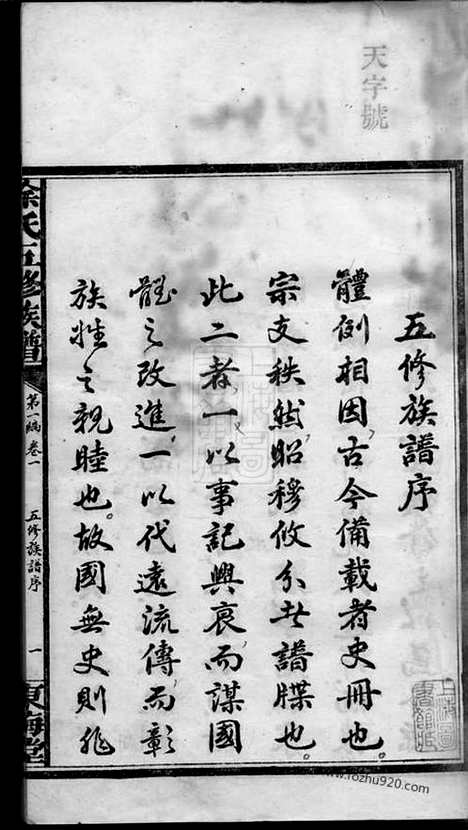 天字號
五修族譜序
體例相因，古今備載者史冊也。
宗支秩然，昭穆攸分者譜牒也。
此二者，一以事記興衰，而謀國
體之改進，一以代遠流傳，而彰
族姓之親睦也。故國無史則非
徐氏五修族譜
第一編卷一
五修族譜序
一
東海堂
www.rozhu920.com